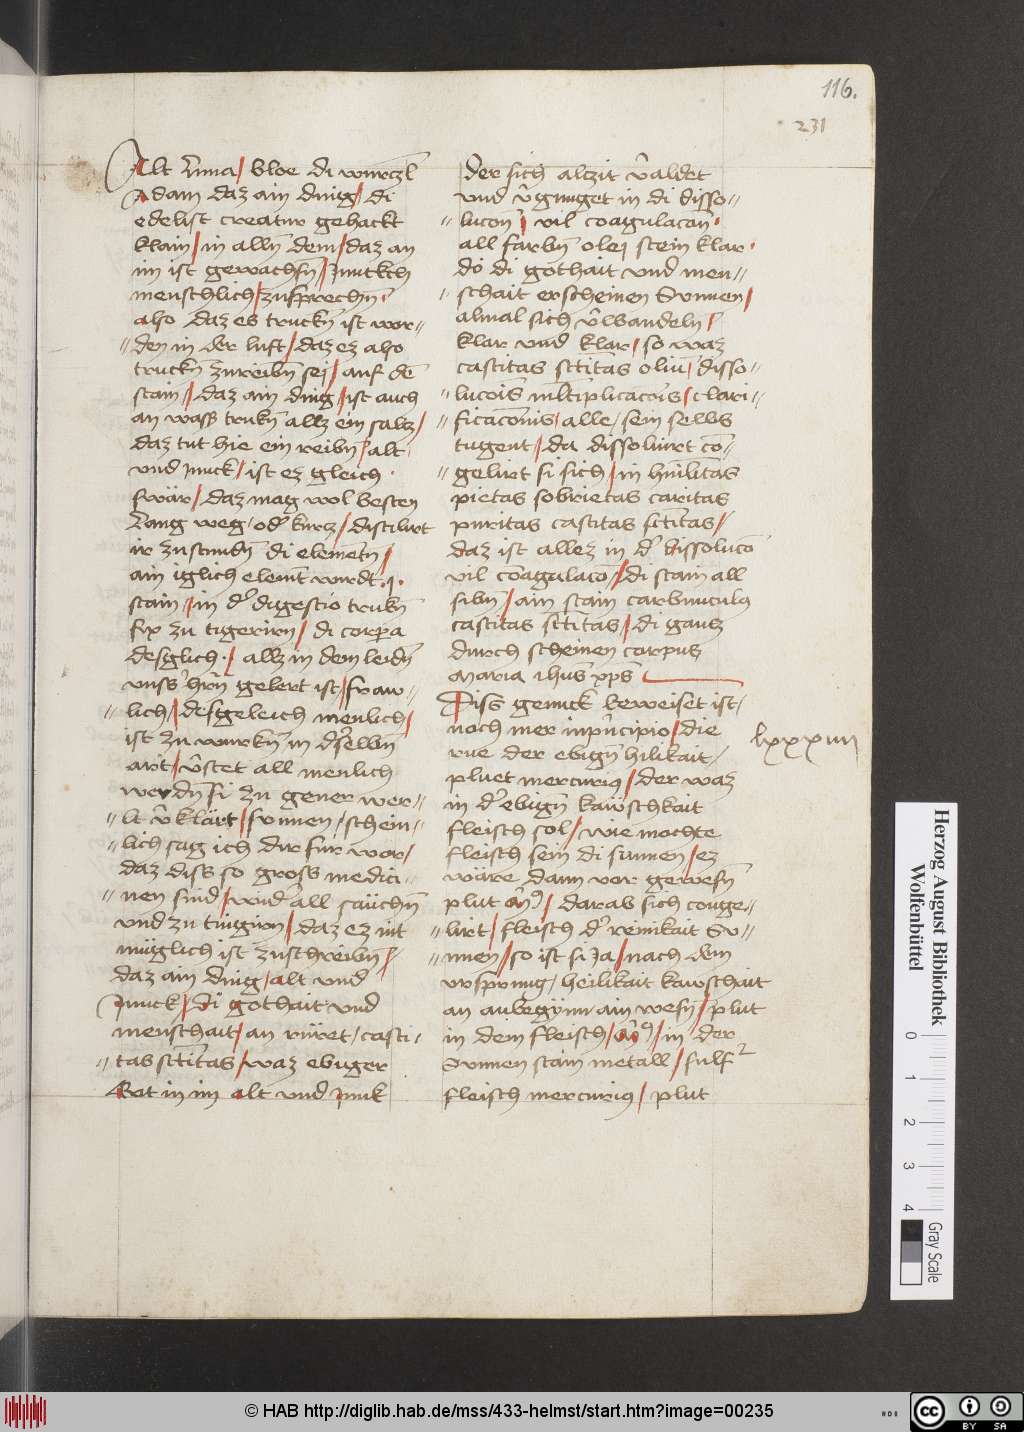 116.
231
Alt vnna / bloe di wurczl
Adam daz ain ding / di
edelist creatur gehackt
klain / in alln dem / daz an
im ist gewachsn / Jnncklich
menschlich / zusprechn
also daz es truckn ist wor=
=den in der luft / daz ez also
truckn zureibn sei / auf dē
stain / daz ain ding / ist auch
an wass trukn allz ein salcz /
daz tut hie ein reibn / alt
vnd Junck / ist ez gleich
swär / daz mag wol besten
lang weg / od kurcz / distilirt
ir zustundn di elementn /
ain iglich element wirdt .j.
stain / in d' digestio trukn
fix zu tigerirn / di corpa
desglich / allz in dem leidn
vnss hrn gelert ist / fraw=
=lich / desgeleich menlich /
ist zu wurkn in dselbn
art / v̄stet all menlich
werdn si zu gener wer=
=lt v̄klärt / sunnen / schein=
=lich sag ich dir fur war /
daz diss so gross medici=
=nen sind / vnd all säuchn
vnd zu tingirn / daz ez nit
müglich ist zuschreibn /
daz ain ding / alt vnd
Junck / di gothait vnd
menschait / an rüret / casti=
=tas sctītas / waz ebiger
Got in im alt vnd Junk
der sich alczit v̄aldet
vnd v̄gnuget in di disso=
=lucon / vil coagulacon
all farbn olej stein klar
do di gothait vnd men=
=schait erscheinen Sunnen /
almal sich v̄wandeln /
klar vnd klar / so waz
castitas sctītas oliū / disso=
=lucois mltiplicacois / clari=
=ficacionis / alle / sein selbs
tugent / da dissoluirt co=
=gelirt si sich / in hūilitas
pietas sobrietas caritas
puritas castitas sctītas /
daz ist allez in d' dissolucō
vil coagulacō / di stain all
sibn / ain stain carbunculus
castitas sctītas / di gancz
durch scheinen corpus
Maria ihus xps
Diss genuck beweiset ist /
noch mer in pncipio / die
rue der ebign hilikait /
pluet mercurius / der waz
in d' ebign kawschkait
fleisch sol / wie mochte
fleisch sein di sunnen / ez
ware dann vor gewesn
plut / darab sich conge=
=lirt / fleisch d' reinikait Su=
=nnen / so ist si Ja / nach dem
vrsprung / heilikait kawschait
an anbegynn ain wesn / plut
in dem fleisch / in der
Sunnen stain metall / sulf
fleisch mercurius / plut
lxxxiiii
Herzog August Bibliothek
Wolfenbüttel
0
1
2
3
4
Gray Scale
© HAB http://diglib.hab.de/mss/433-helmst/start.htm?image=00235
HDB
cc
BY
SA